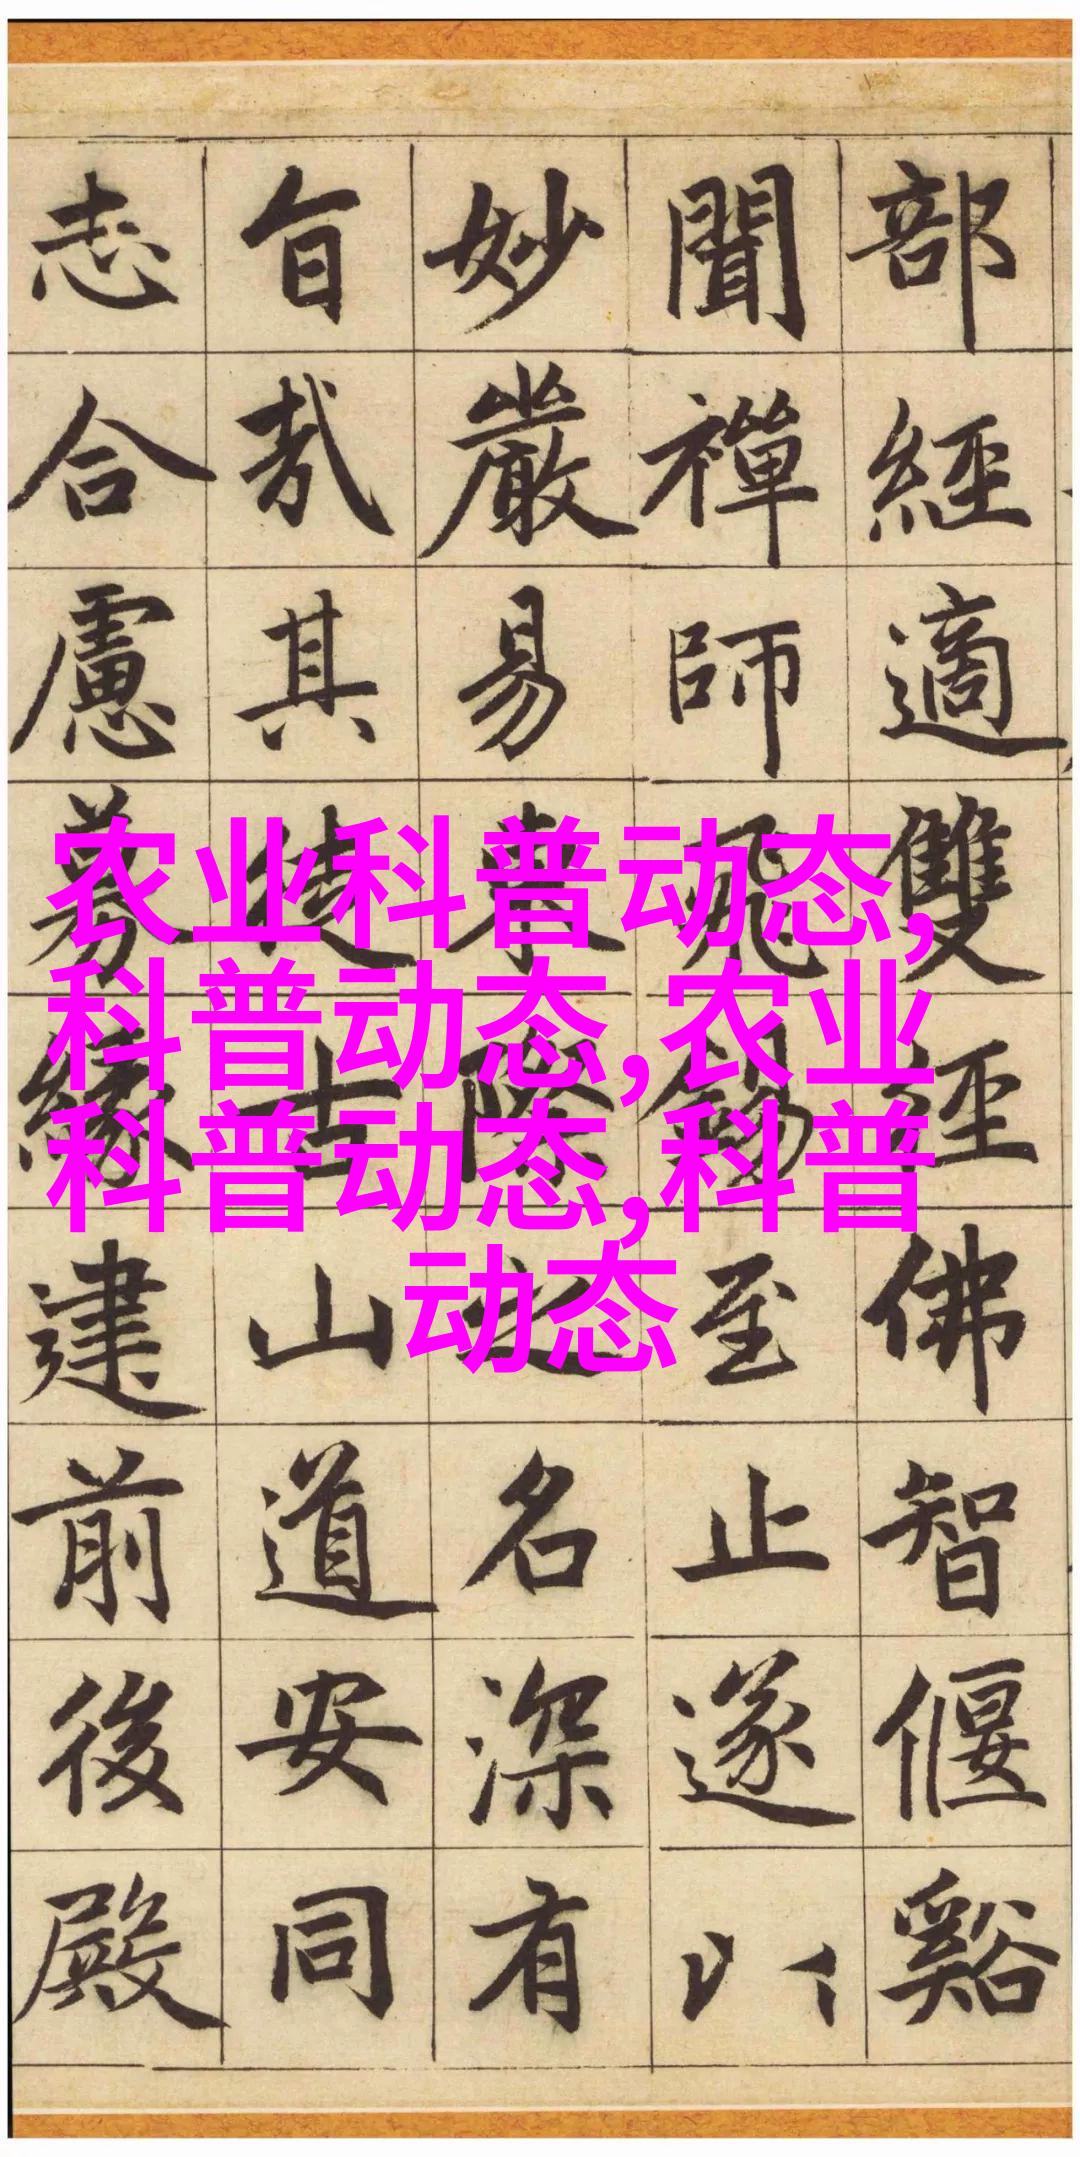 部經適雙徑佛智偃谿
聞禪師飛錫至止遂以
妙嚴易東際之名深有
旨哉其徒古山道安同
志合慮募緣建前後殿
农业科普动态,
科普动态,农业
科普动态,科普
动态